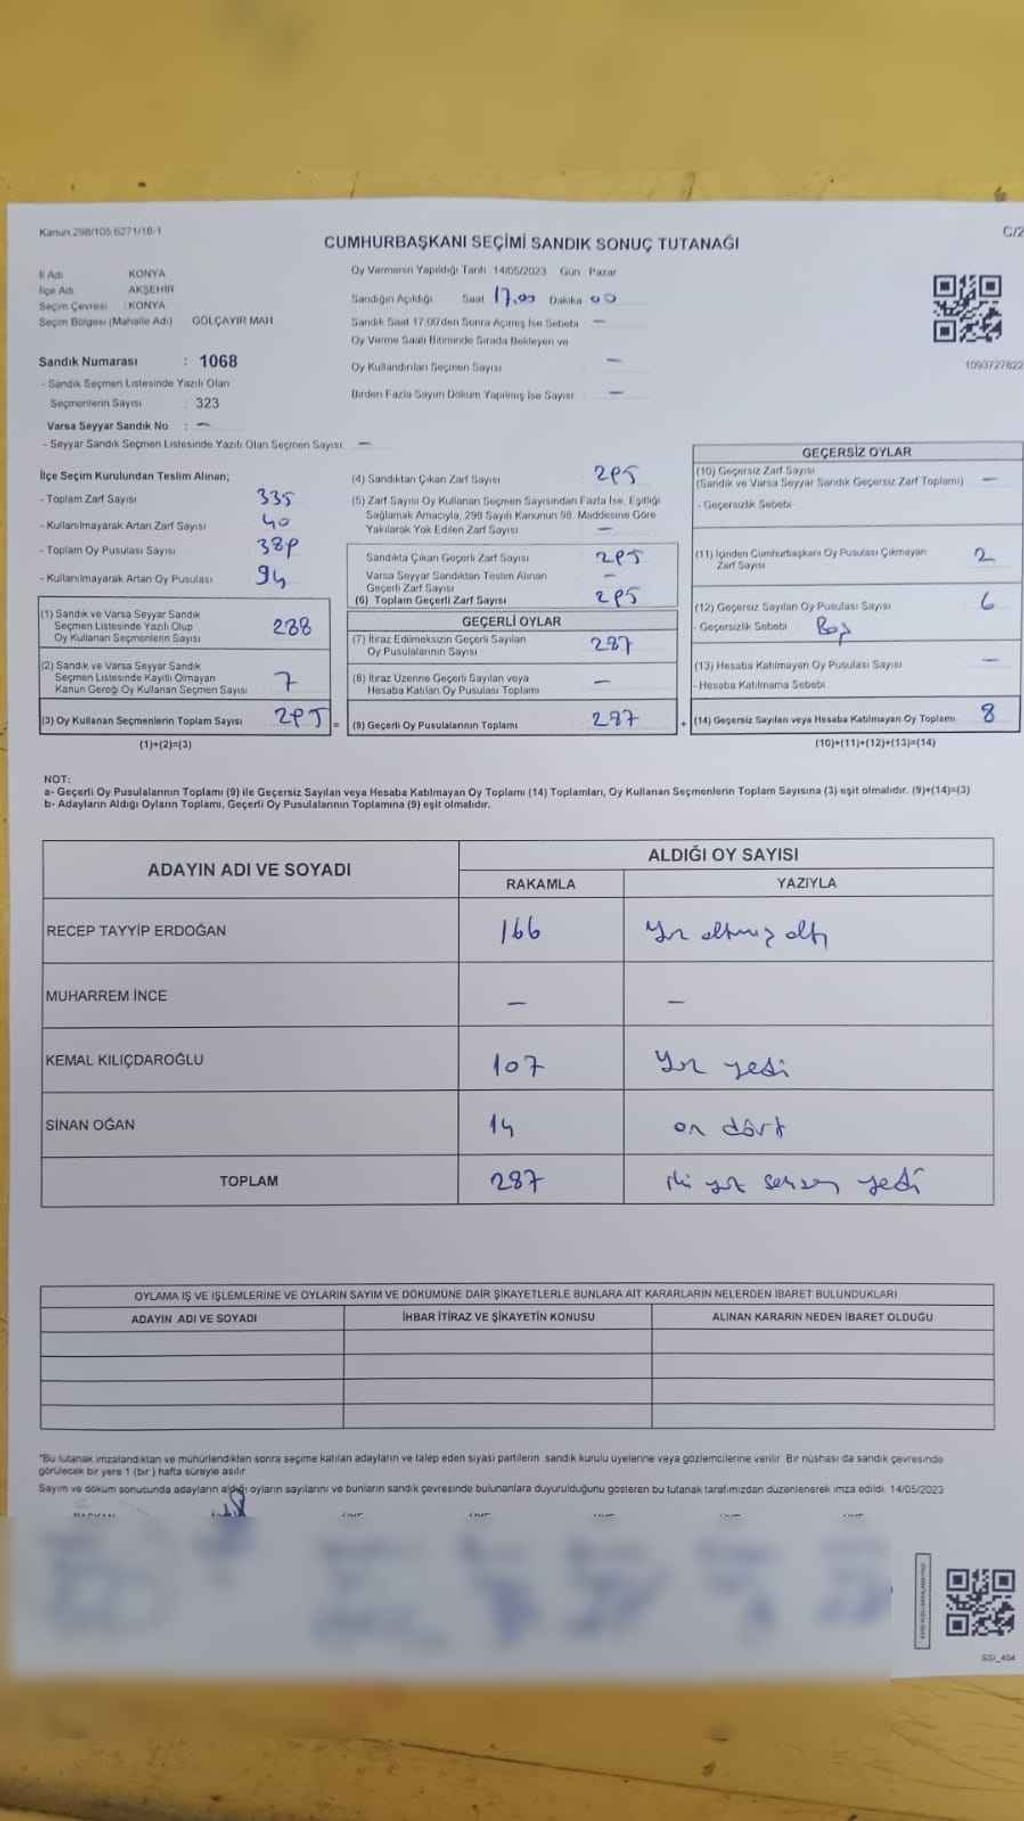 Kanun 298/105 6271/18-1
C/2
CUMHURBAŞKANI SEÇİMİ SANDIK SONUÇ TUTANAĞI
İl Adı KONYA
İlçe Adı AKŞEHİR
Seçim Çevresi : KONYA
Seçim Bölgesi (Mahalle Adı) GÖLÇAYIR MAH
Oy Vermenin Yapıldığı Tarih 14/05/2023 Gün Pazar
Sandığın Açıldığı Saat 17.00 Dakika 00
Sandık Saat 17:00'den Sonra Açılmış İse Sebebi —
Oy Verme Saati Bitiminde Sırada Bekleyen ve
Oy Kullandırılan Seçmen Sayısı —
Birden Fazla Sayım Döküm Yapılmış İse Sayısı —
1093727822
Sandık Numarası : 1068
- Sandık Seçmen Listesinde Yazılı Olan
Seçmenlerin Sayısı : 323
Varsa Seyyar Sandık No : —
- Seyyar Sandık Seçmen Listesinde Yazılı Olan Seçmen Sayısı: —
İlçe Seçim Kurulundan Teslim Alınan;
- Toplam Zarf Sayısı 335
- Kullanılmayarak Artan Zarf Sayısı 40
- Toplam Oy Pusulası Sayısı 389
- Kullanılmayarak Artan Oy Pusulası 94
(1) Sandık ve Varsa Seyyar Sandık
Seçmen Listesinde Yazılı Olup
Oy Kullanan Seçmenlerin Sayısı 288
(2) Sandık ve Varsa Seyyar Sandık
Seçmen Listesinde Kayıtlı Olmayan
Kanun Gereği Oy Kullanan Seçmen Sayısı 7
(3) Oy Kullanan Seçmenlerin Toplam Sayısı 295 =
(1)+(2)=(3)
(4) Sandıktan Çıkan Zarf Sayısı 295
(5) Zarf Sayısı Oy Kullanan Seçmen Sayısından Fazla İse, Eşitliği
Sağlamak Amacıyla, 298 Sayılı Kanunun 98. Maddesine Göre
Yakılarak Yok Edilen Zarf Sayısı —
Sandıkta Çıkan Geçerli Zarf Sayısı 295
Varsa Seyyar Sandıktan Teslim Alınan
Geçerli Zarf Sayısı —
(6) Toplam Geçerli Zarf Sayısı 295
GEÇERLİ OYLAR
(7) İtiraz Edilmeksizin Geçerli Sayılan
Oy Pusulalarının Sayısı 287
(8) İtiraz Üzerine Geçerli Sayılan veya
Hesaba Katılan Oy Pusulası Toplamı —
(9) Geçerli Oy Pusulalarının Toplamı 287 +
GEÇERSİZ OYLAR
(10) Geçersiz Zarf Sayısı
(Sandık ve Varsa Seyyar Sandık Geçersiz Zarf Toplamı) —
- Geçersizlik Sebebi
(11) İçinden Cumhurbaşkanı Oy Pusulası Çıkmayan
Zarf Sayısı 2
(12) Geçersiz Sayılan Oy Pusulası Sayısı 6
- Geçersizlik Sebebi Boş
(13) Hesaba Katılmayan Oy Pusulası Sayısı —
- Hesaba Katılmama Sebebi
(14) Geçersiz Sayılan veya Hesaba Katılmayan Oy Toplamı 8
(10)+(11)+(12)+(13)=(14)
NOT:
a- Geçerli Oy Pusulalarının Toplamı (9) ile Geçersiz Sayılan veya Hesaba Katılmayan Oy Toplamı (14) Toplamları, Oy Kullanan Seçmenlerin Toplam Sayısına (3) eşit olmalıdır. (9)+(14)=(3)
b- Adayların Aldığı Oyların Toplamı, Geçerli Oy Pusulalarının Toplamına (9) eşit olmalıdır.
ADAYIN ADI VE SOYADI
ALDIĞI OY SAYISI
RAKAMLA YAZIYLA
RECEP TAYYİP ERDOĞAN 166 Yüz altmış altı
MUHARREM İNCE — —
KEMAL KILIÇDAROĞLU 107 Yüz yedi
SİNAN OĞAN 14 on dört
TOPLAM 287 iki yüz seksen yedi
OYLAMA İŞ VE İŞLEMLERİNE VE OYLARIN SAYIM VE DÖKÜMÜNE DAİR ŞİKAYETLERLE BUNLARA AİT KARARLARIN NELERDEN İBARET BULUNDUKLARI
ADAYIN ADI VE SOYADI İHBAR İTİRAZ VE ŞİKAYETİN KONUSU ALINAN KARARIN NEDEN İBARET OLDUĞU
"Bu tutanak imzalandıktan ve mühürlendikten sonra seçime katılan adayların ve talep eden siyasi partilerin sandık kurulu üyelerine veya gözlemcilerine verilir. Bir nüshası da sandık çevresinde
görülecek bir yere 1 (bir) hafta süreyle asılır.
Sayım ve döküm sonucunda adayların aldığı oyların sayılarını ve bunların sandık çevresinde bulunanlara duyurulduğunu gösteren bu tutanak tarafımızdan düzenlenerek imza edildi. 14/05/2023
SSI_404